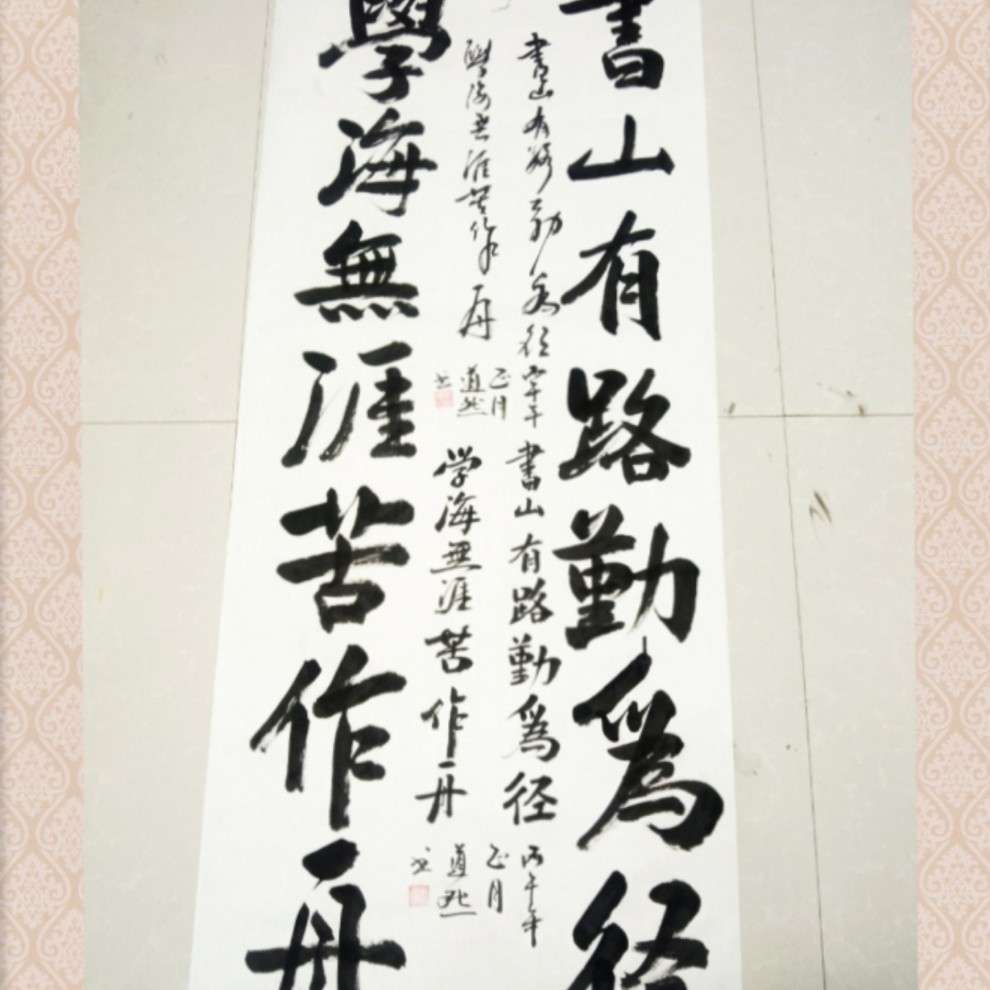 書山有路勤為径
書山有路勤為径
丙午年
正月
學海無涯苦作舟
道然
书
書山有路勤爲径
丙午年
正月
学海無涯苦作舟
道然
书
學海無涯苦作舟